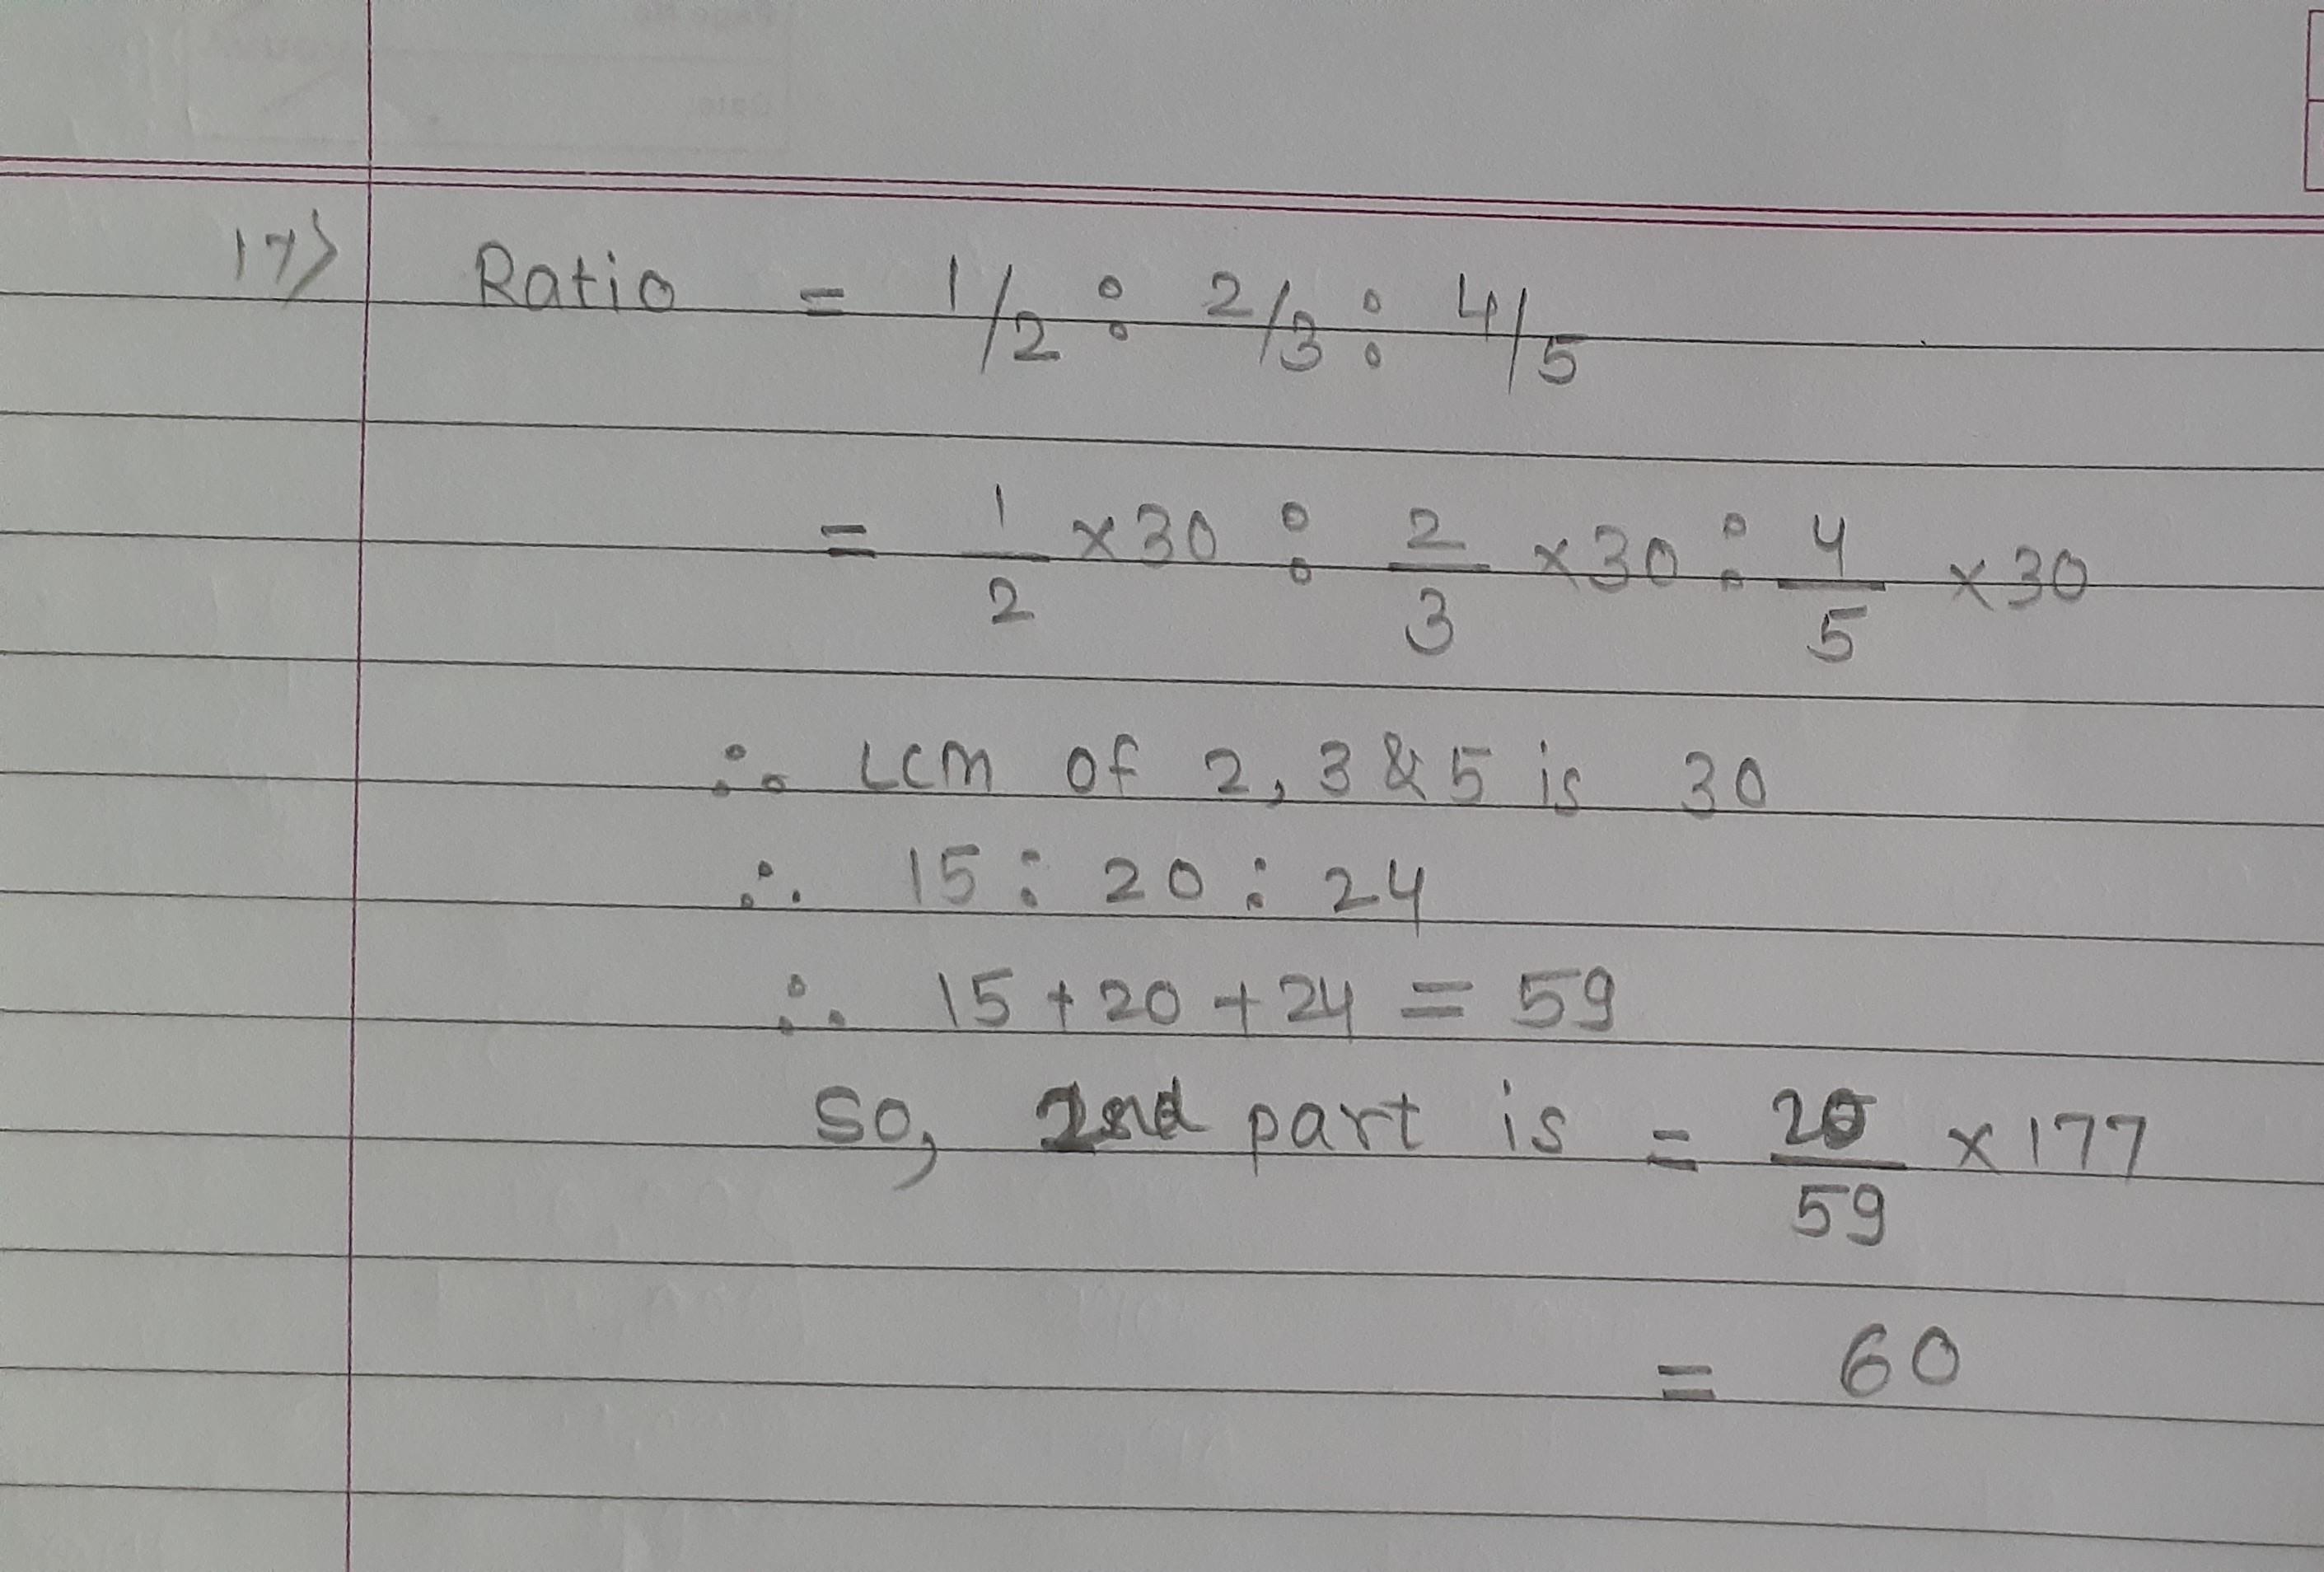 17) Ratio = 1/2 : 2/3 : 4/5
= 1/2 ×30 : 2/3 ×30 : 4/5 ×30
∴ LCM of 2, 3 & 5 is 30
∴ 15 : 20 : 24
∴ 15 + 20 + 24 = 59
So, 2nd part is = 20/59 × 177
= 60